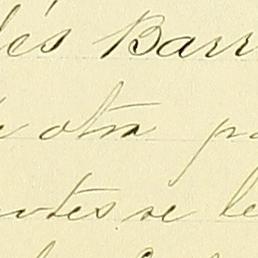 lés Barr
otra pa
ntes se le